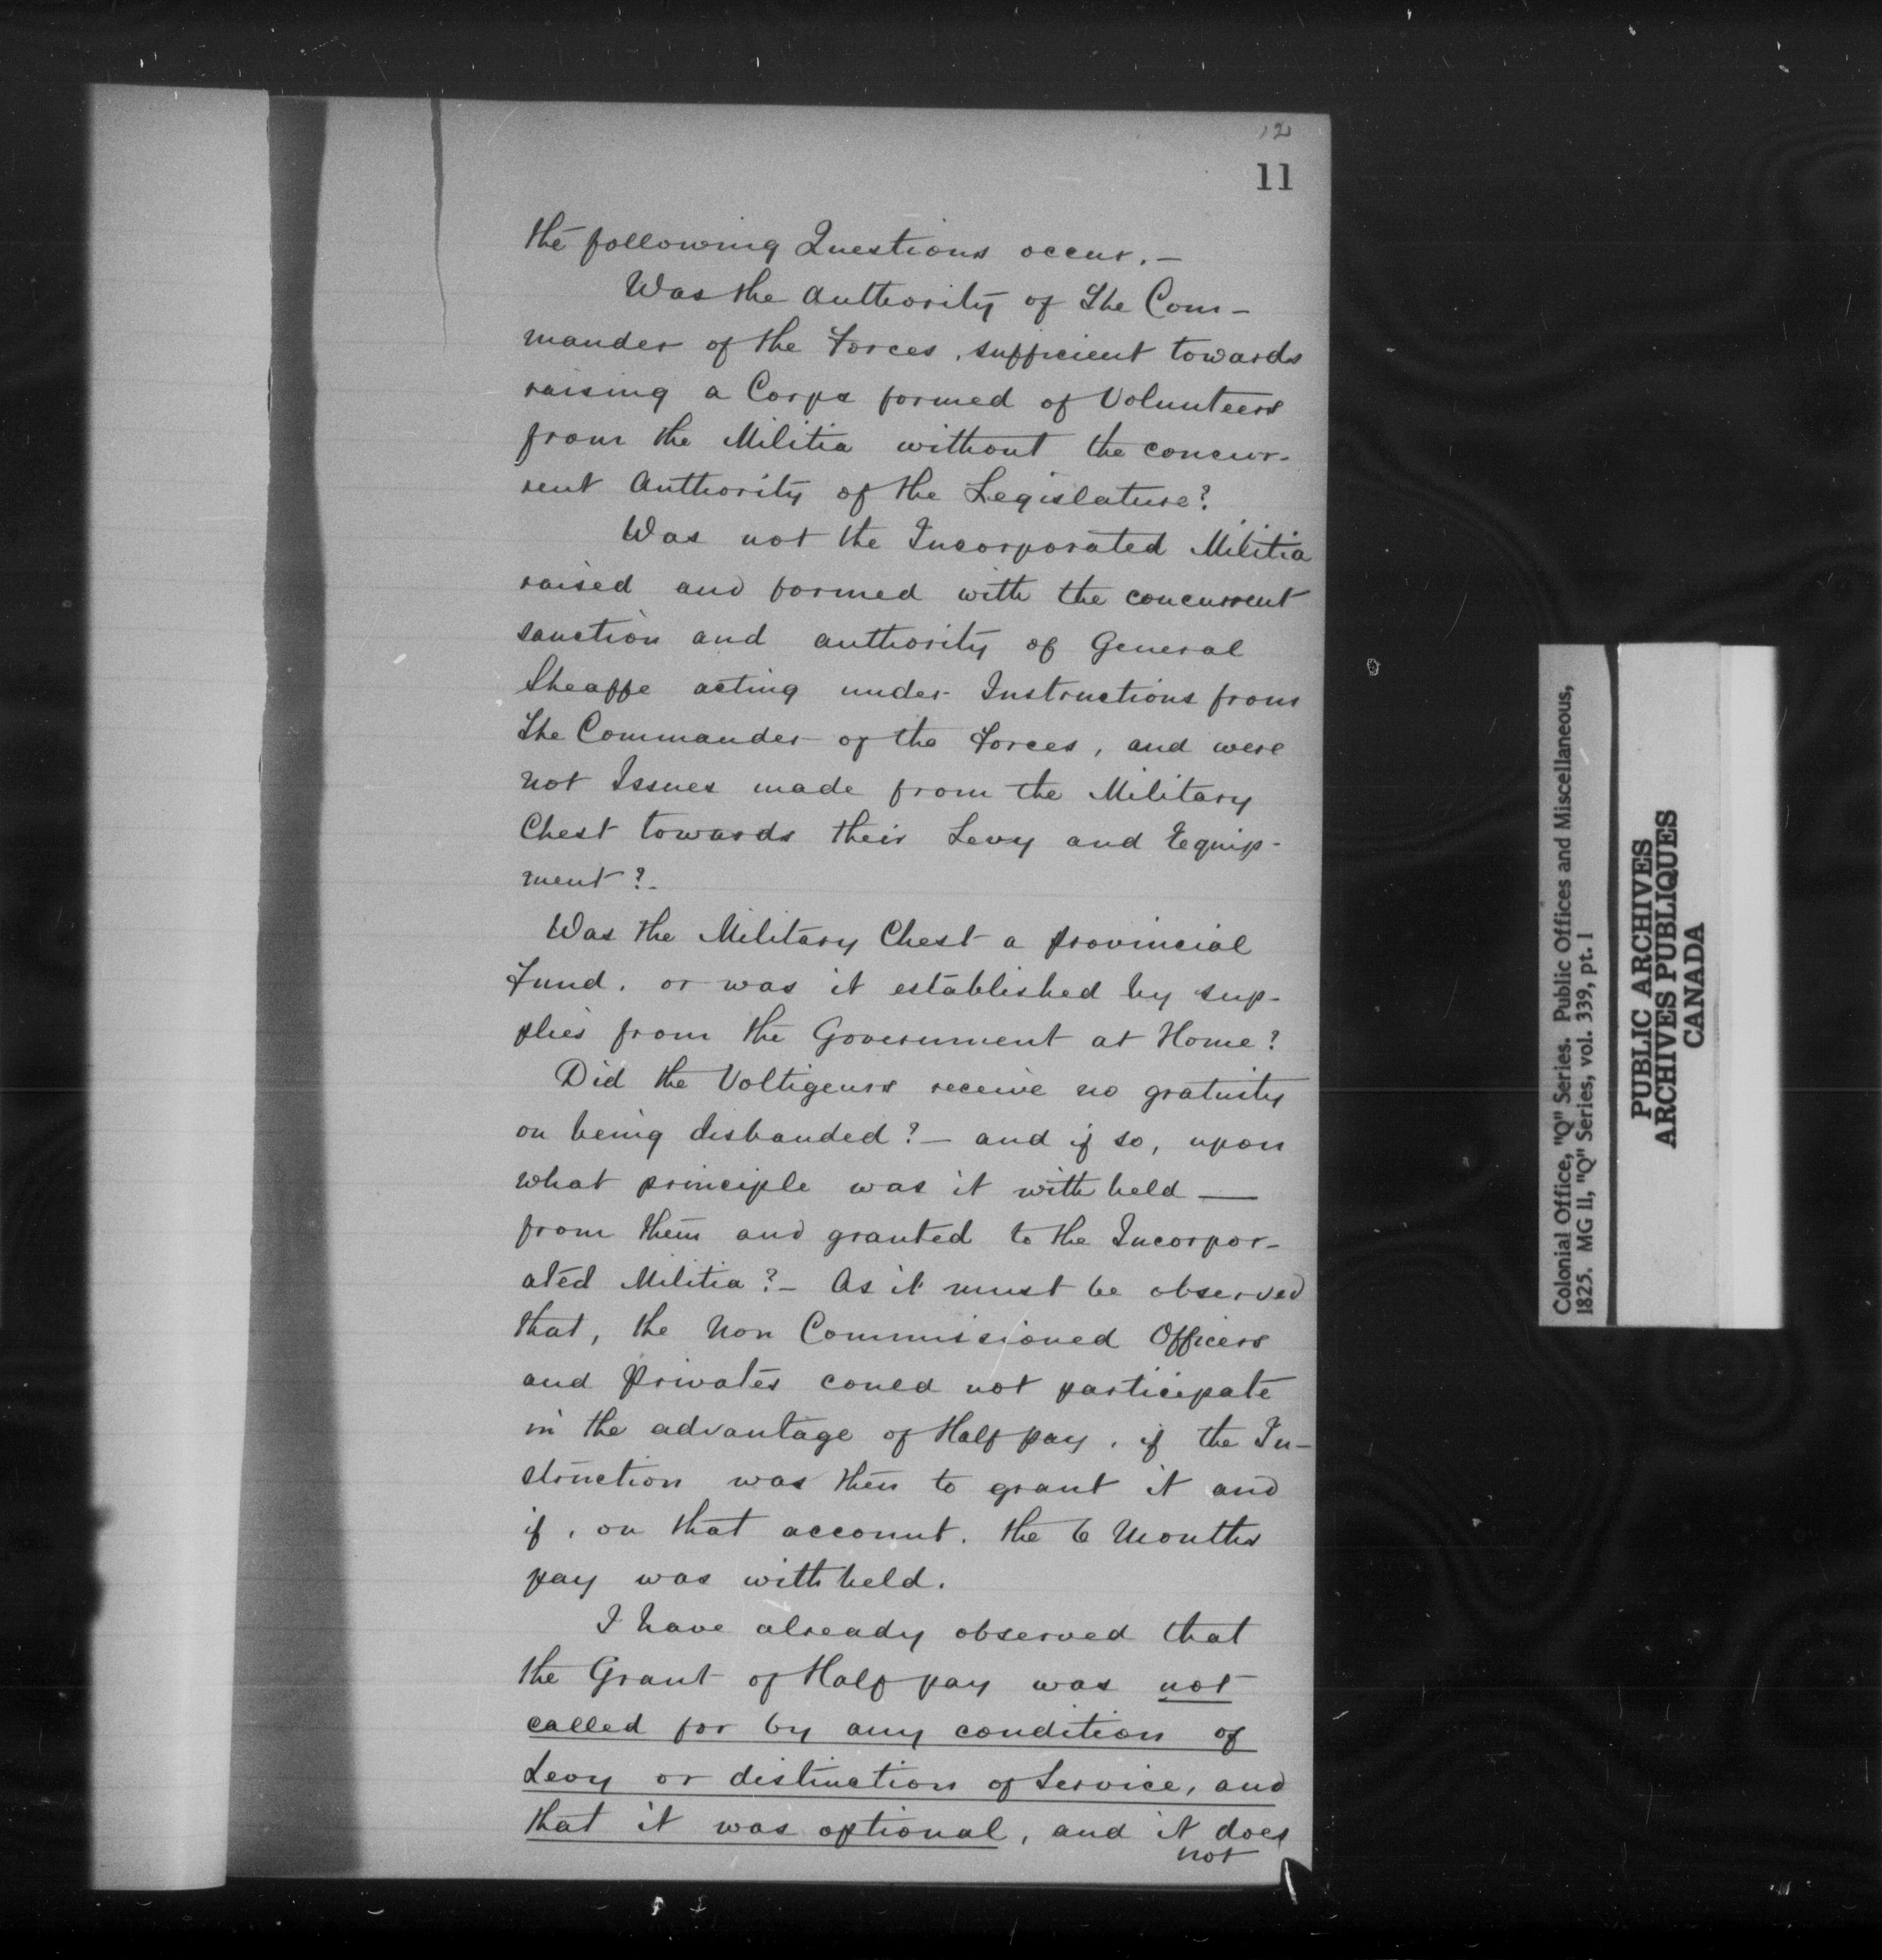 12
11
the following Questions occur. —
Was the Authority of The Com-
mander of the Forces, sufficient towards
raising a Corps formed of Volunteers
from the Militia without the concur-
rent Authority of the Legislature?
Was not the Incorporated Militia
raised and formed with the concurrent
sanction and authority of General
Sheaffe acting under Instructions from
The Commander of the Forces, and were
not Issues made from the Military
Chest towards their Levy and Equip-
ment? -
Was the Military Chest a provincial
Fund, or was it established by sup-
plies from the Government at Home?
Did the Voltigeurs receive no gratuity
on being disbanded? — and if so, upon
what principle was it withheld —
from them and granted to the Incorpor-
ated Militia? — As it must be observed
that, the Non Commissioned Officers
and Privates could not participate
in the advantage of Half pay, if the In-
struction was then to grant it and
if, on that account, the 6 Months
pay was withheld.
I have already observed that
the Grant of Half pay was not
called for by any condition of
Levy or distinction of Service, and
that it was optional, and it does
not
Colonial Office, "Q" Series. Public Offices and Miscellaneous,
1825. MG 11, "Q" Series, vol. 339, pt. 1
PUBLIC ARCHIVES
ARCHIVES PUBLIQUES
CANADA